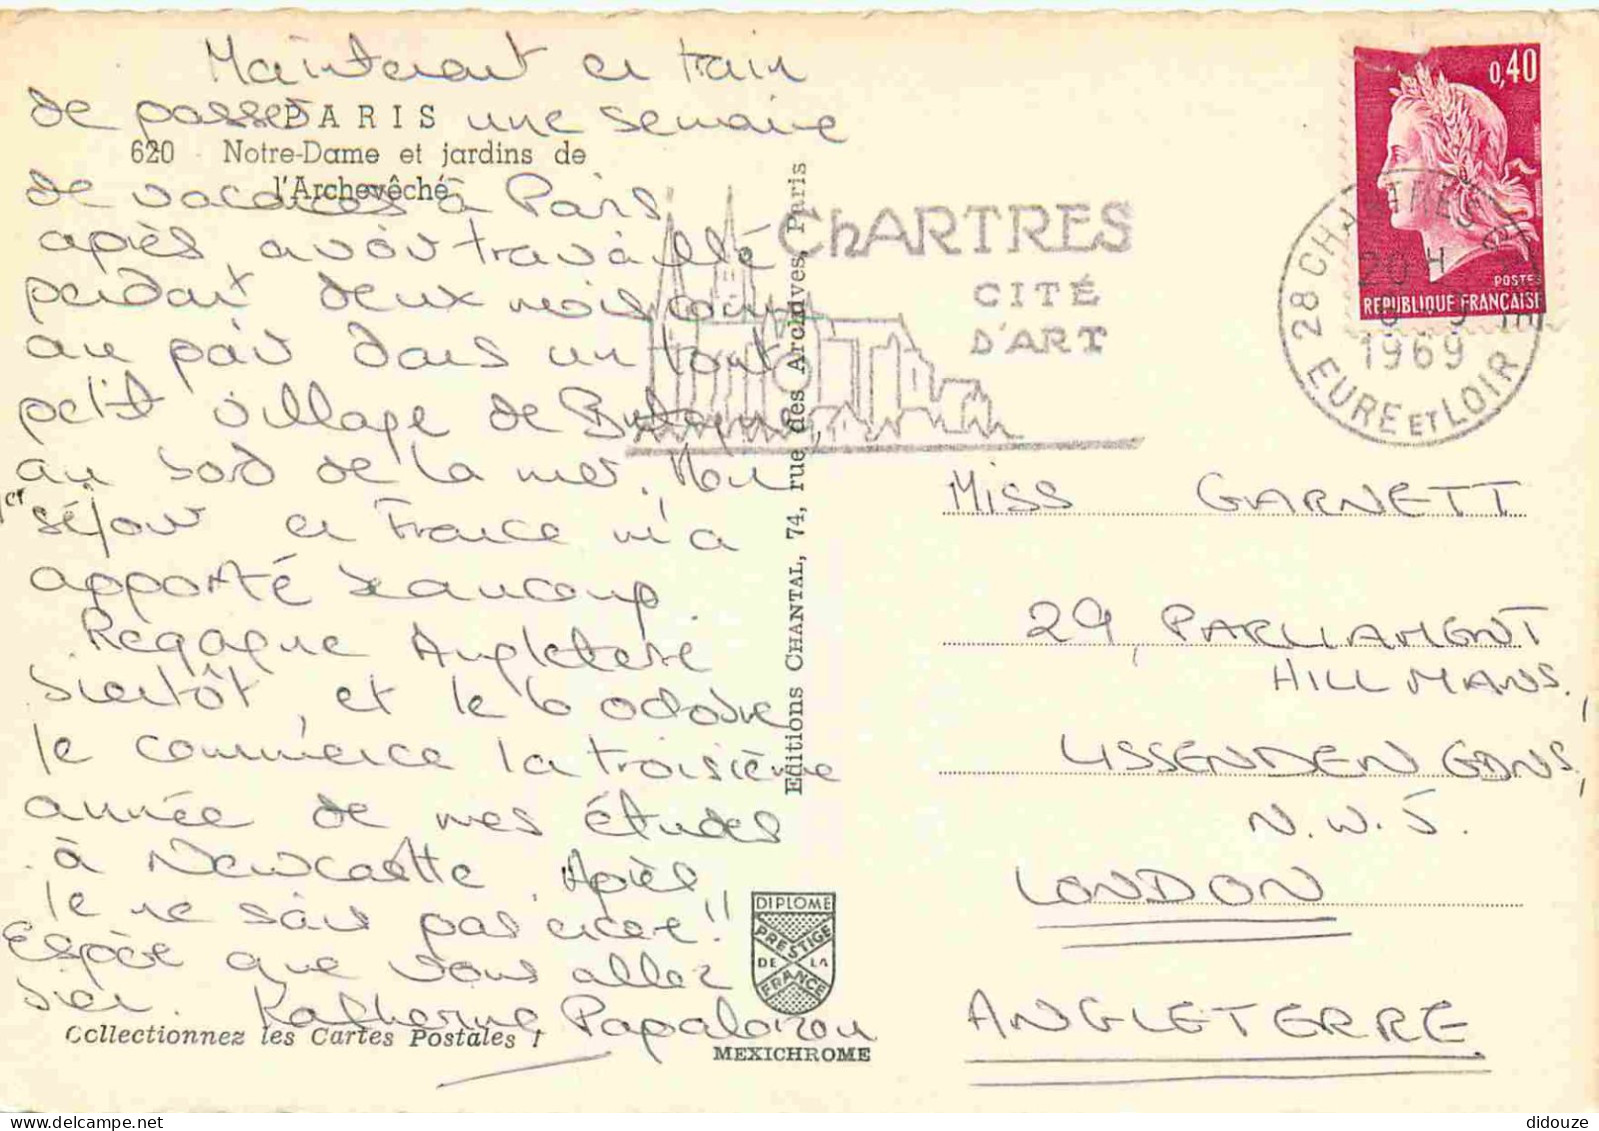 Maintenant en train
de passer une semaine
de vacances à Paris
après avoir travaillé
pendant deux mois comme
au pair dans un tout
petit village de Bretagne
au bord de la mer. Mon
1er séjour en France m'a
apporté beaucoup.
Regagne Angleterre
bientôt, et le 6 octobre
je commence la troisième
année de mes études
à Newcastle. Après
je ne sais pas encore!!
Espère que vous allez
bien. Katherine Papalozou
PARIS
620 Notre-Dame et jardins de
l'Archevêché
Collectionnez les Cartes Postales !
Editions CHANTAL, 74, rue des Archives, Paris
DIPLOME
PRESTIGE
DE LA
FRANCE
MEXICHROME
ChARTRES
CITÉ
D'ART
0,40
POSTES
REPUBLIQUE FRANÇAISE
28 CHARTRES
20 H
1969
EURE ET LOIR
MISS GARNETT
29, PARLIAMENT
HILL MANS.,
LISSENDEN GDNS,
N.W.5.
LONDON
ANGLETERRE.
didouze